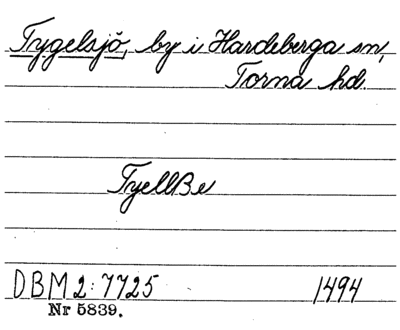 Tygelsjö, by i Hardeberga sn,
Torna hd.
TyellBe
DBM 2: 7725 1494
Nr 5839.